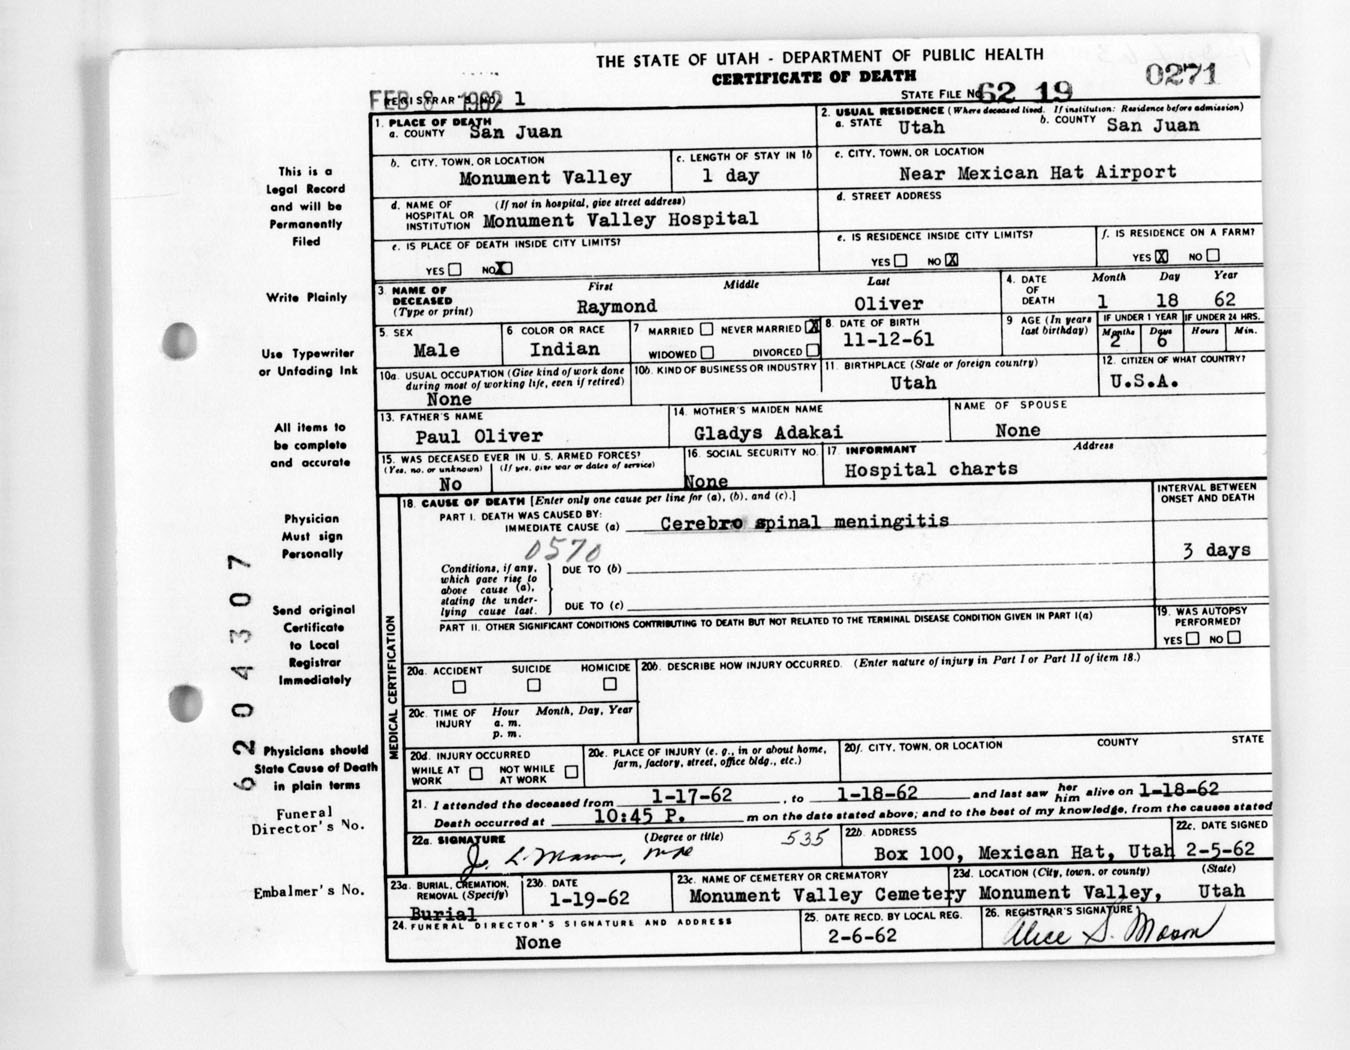 THE STATE OF UTAH - DEPARTMENT OF PUBLIC HEALTH
CERTIFICATE OF DEATH
0271
FEB 8 1962
REGISTRAR'S NO. 1
STATE FILE NO. 62 19
1. PLACE OF DEATH
a. COUNTY San Juan
2. USUAL RESIDENCE (Where deceased lived. If institution: Residence before admission)
a. STATE Utah b. COUNTY San Juan
b. CITY, TOWN, OR LOCATION
Monument Valley
c. LENGTH OF STAY IN 1b
1 day
c. CITY, TOWN, OR LOCATION
Near Mexican Hat Airport
d. NAME OF (If not in hospital, give street address)
HOSPITAL OR
INSTITUTION Monument Valley Hospital
d. STREET ADDRESS
e. IS PLACE OF DEATH INSIDE CITY LIMITS?
YES NO X
e. IS RESIDENCE INSIDE CITY LIMITS?
YES NO X
f. IS RESIDENCE ON A FARM?
YES X NO
3. NAME OF DECEASED (Type or print)
First Middle Last
Raymond Oliver
4. DATE OF DEATH
Month Day Year
1 18 62
5. SEX
Male
6 COLOR OR RACE
Indian
7 MARRIED NEVER MARRIED X
WIDOWED DIVORCED
8. DATE OF BIRTH
11-12-61
9 AGE (In years last birthday)
IF UNDER 1 YEAR IF UNDER 24 HRS.
Months Days Hours Min.
2 6
10a. USUAL OCCUPATION (Give kind of work done
during most of working life, even if retired)
None
10b. KIND OF BUSINESS OR INDUSTRY
11. BIRTHPLACE (State or foreign country)
Utah
12. CITIZEN OF WHAT COUNTRY?
U.S.A.
13. FATHER'S NAME
Paul Oliver
14. MOTHER'S MAIDEN NAME
Gladys Adakai
NAME OF SPOUSE
None
15. WAS DECEASED EVER IN U. S. ARMED FORCES?
(Yes, no, or unknown) (If yes, give war or dates of service)
No
16. SOCIAL SECURITY NO.
None
17. INFORMANT Address
Hospital charts
MEDICAL CERTIFICATION
18. CAUSE OF DEATH [Enter only one cause per line for (a), (b), and (c).]
PART I. DEATH WAS CAUSED BY:
IMMEDIATE CAUSE (a) Cerebro spinal meningitis
0570
Conditions, if any,
which gave rise to
above cause (a),
stating the under-
lying cause last.
DUE TO (b)
DUE TO (c)
INTERVAL BETWEEN
ONSET AND DEATH
3 days
PART II. OTHER SIGNIFICANT CONDITIONS CONTRIBUTING TO DEATH BUT NOT RELATED TO THE TERMINAL DISEASE CONDITION GIVEN IN PART I(a)
19. WAS AUTOPSY
PERFORMED?
YES NO
20a. ACCIDENT SUICIDE HOMICIDE
20b. DESCRIBE HOW INJURY OCCURRED. (Enter nature of injury in Part I or Part II of item 18.)
20c. TIME OF INJURY Hour Month, Day, Year
a. m.
p. m.
20d. INJURY OCCURRED
WHILE AT WORK NOT WHILE AT WORK
20e. PLACE OF INJURY (e. g., in or about home,
farm, factory, street, office bldg., etc.)
20f. CITY, TOWN, OR LOCATION COUNTY STATE
21. I attended the deceased from 1-17-62, to 1-18-62 and last saw her him alive on 1-18-62
Death occurred at 10:45 P. m on the date stated above; and to the best of my knowledge, from the causes stated
22a. SIGNATURE (Degree or title)
J. L. Mason, MD
535
22b. ADDRESS
Box 100, Mexican Hat, Utah
22c. DATE SIGNED
2-5-62
23a. BURIAL, CREMATION,
REMOVAL (Specify)
Burial
23b. DATE
1-19-62
23c. NAME OF CEMETERY OR CREMATORY
Monument Valley Cemetery
23d. LOCATION (City, town, or county) (State)
Monument Valley, Utah
24. FUNERAL DIRECTOR'S SIGNATURE AND ADDRESS
None
25. DATE RECD. BY LOCAL REG.
2-6-62
26. REGISTRAR'S SIGNATURE
Alice S. Mason
This is a
Legal Record
and will be
Permanently
Filed
Write Plainly
Use Typewriter
or Unfading Ink
All items to
be complete
and accurate
Physician
Must sign
Personally
Send original
Certificate
to Local
Registrar
Immediately
Physicians should
State Cause of Death
in plain terms
Funeral
Director's No.
Embalmer's No.
6204307